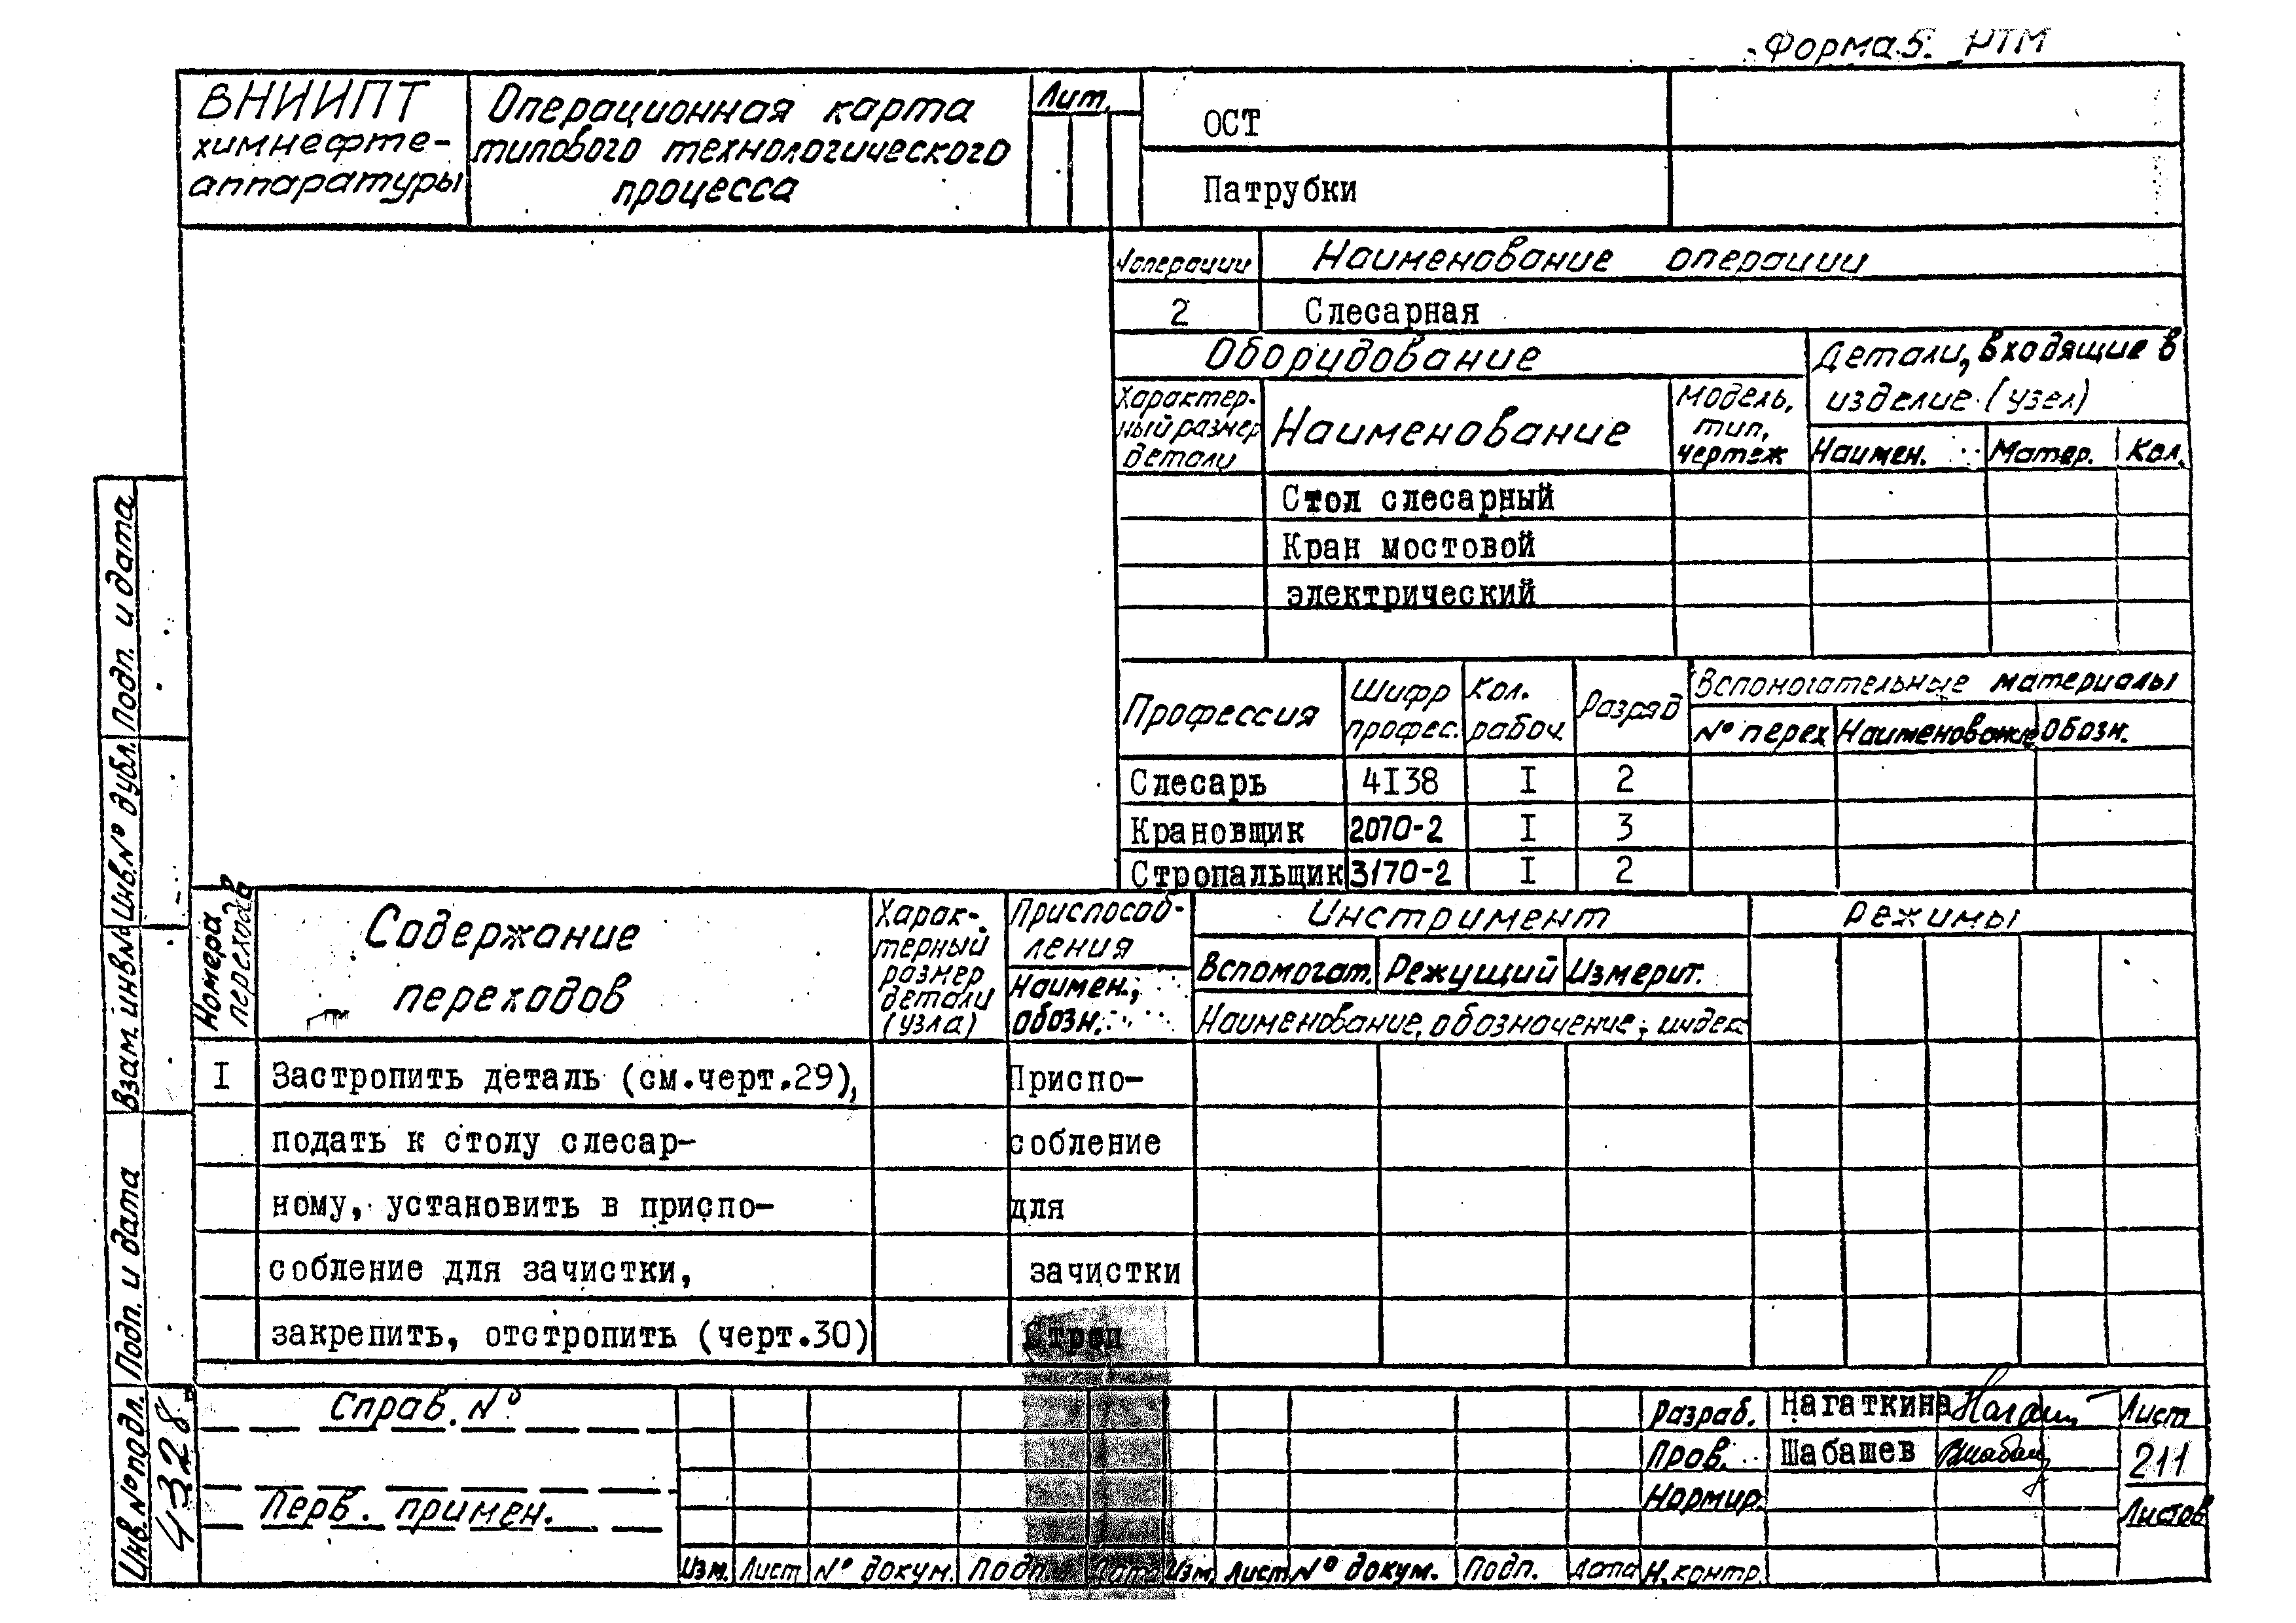 Форма 5. РТМ
ВНИИПТ
химнефте-
аппаратуры
Операционная карта
типового технологического
процесса
Лит.
ОСТ
Патрубки
№операции
Наименование операции
2
Слесарная
Оборудование
Детали, входящие в
изделие (узел)
Характер-
ный размер
детали
Наименование
Модель,
тип,
чертеж
Наимен.
Матер.
Кол.
Стол слесарный
Кран мостовой
электрический
Профессия
Шифр
профес.
Кол.
рабоч.
Разряд
Вспомогательные материалы
№ перех
Наименование
Обозн.
Слесарь 4I38 I 2
Крановщик 2070-2 I 3
Стропальщик 3170-2 I 2
Номера
переходов
Содержание
переходов
Харак-
терный
размер
детали
(узла)
Приспособ-
ления
Наимен.,
обозн.
Инструмент
Вспомогат.
Режущий
Измерит.
Наименование, обозначение, индекс
Режимы
I Застропить деталь (см.черт.29), Приспо-
подать к столу слесар- собление
ному, установить в приспо- для
собление для зачистки, зачистки
закрепить, отстропить (черт.30) Строп
Подп. и дата
Инв.№ дубл.
Взам. инв.№
Подп. и дата
Инв.№ подл.
4328
Справ. №
Перв. примен.
Изм. Лист № докум. Подп. Дата Изм. Лист № докум. Подп. Дата
Разраб. Нагаткина
Пров. Шабашев
Нормир.
Н.контр.
Лист
211
Листов